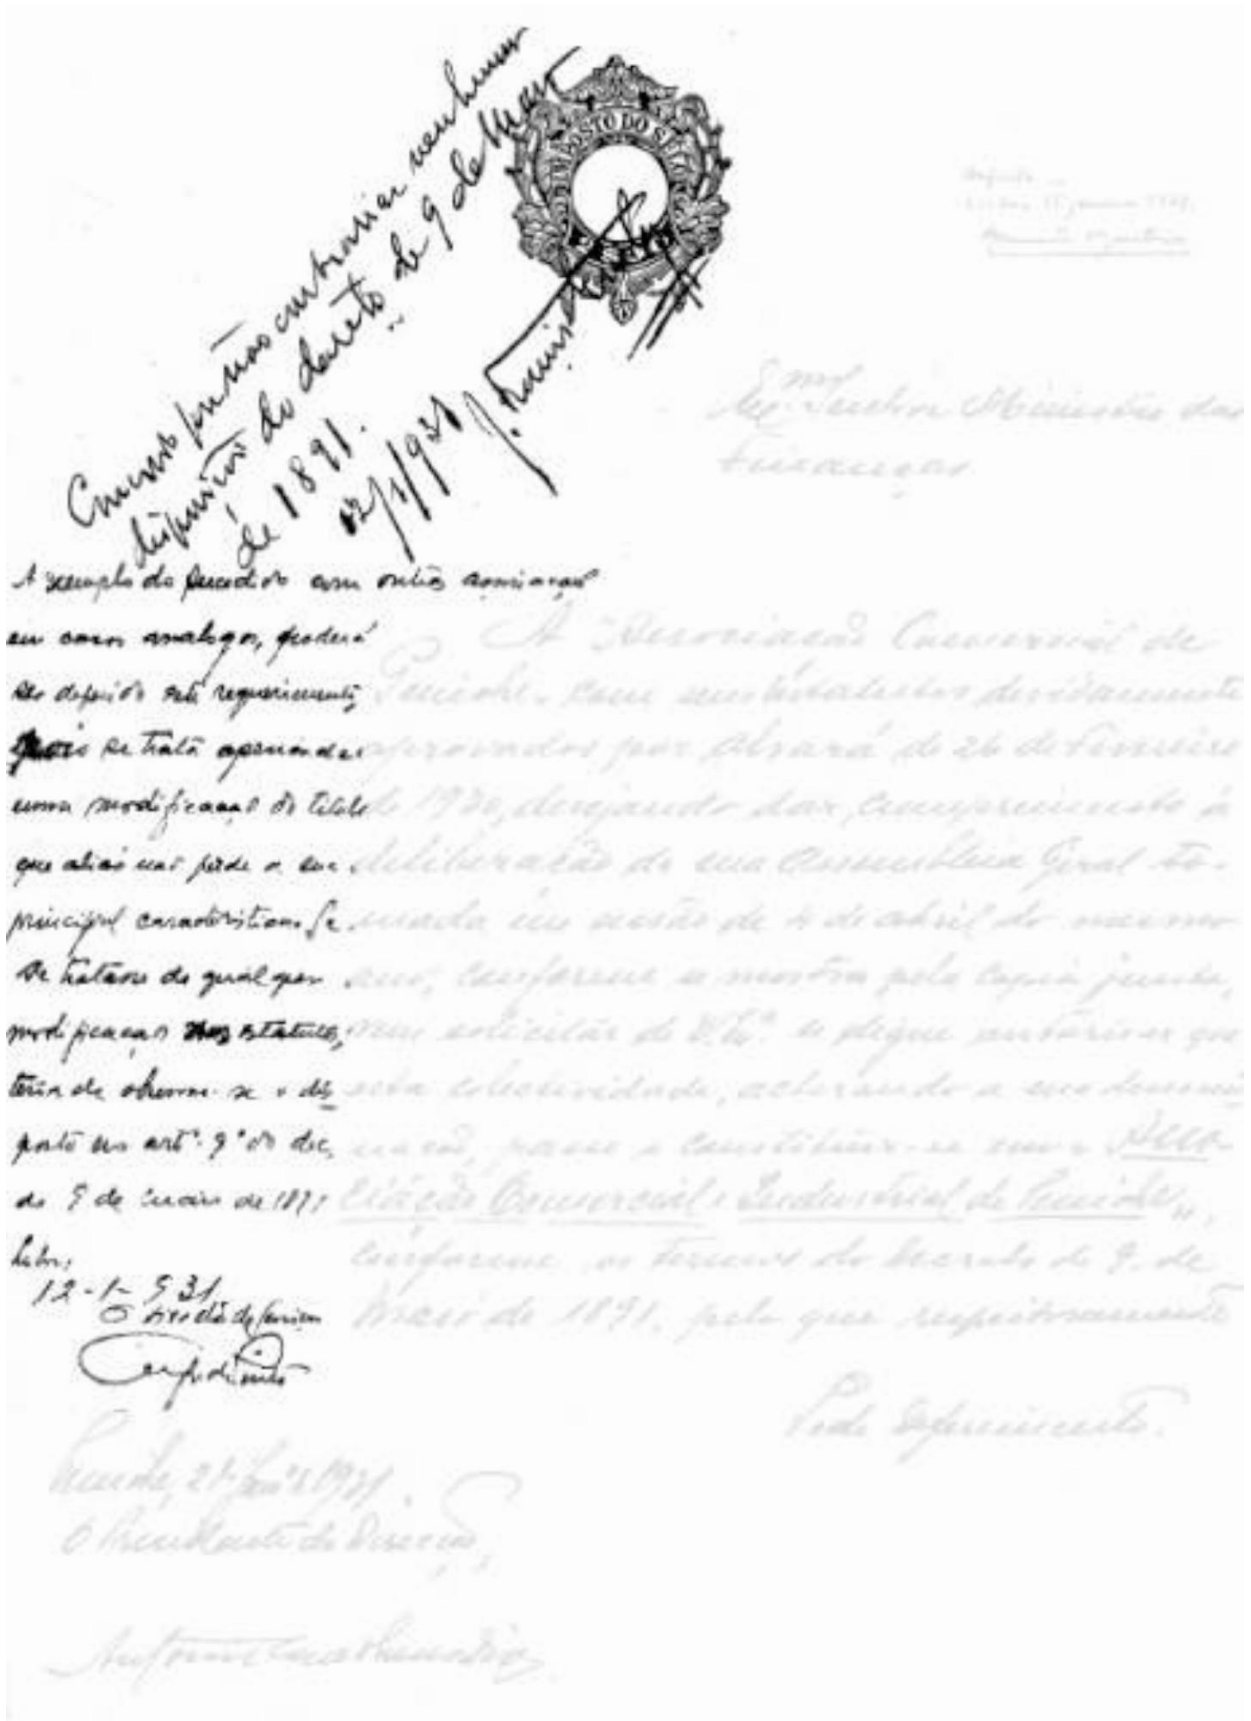 não contrariar nenhuma
do decreto de 9 de Maio
de 1891.
12/1/931
IMPOSTO DO SELO
Lisboa 15 janeiro 1931
Senhor Ministro das
Finanças
A exemplo do sucedido com outras associações
em casos analogos, poderá
ser deferido este requerimento,
pois se trata apenas de
uma modificação do titulo
que aliás não perde a sua
principal caracteristica. Se
se tratasse de qualquer
modificação nos estatutos,
teria de observar-se o dis
posto no artº. 9º do dec.
de 9 de maio de 1891
12-1-931
O director de serviços
A Associação Comercial de
Peniche, com seus estatutos devidamente
aprovados por Alvará de 26 de Fevereiro
de 1930, desejando dar cumprimento á
deliberação da sua Assembleia Geral to-
mada em sessão de 4 de abril do mesmo
ano, conforme se mostra pela copia junta,
vem solicitar de V. Exª. se digne autorisar que
esta colectividade, alterando a sua denomi
nação, passe a constituir-se em "Asso-
ciação Comercial e Industrial de Peniche",
conforme os termos do Decreto de 9 de
Maio de 1891, pelo que respeitosamente
Pede deferimento.
Peniche, 2 1931
O Presidente da Direcção,